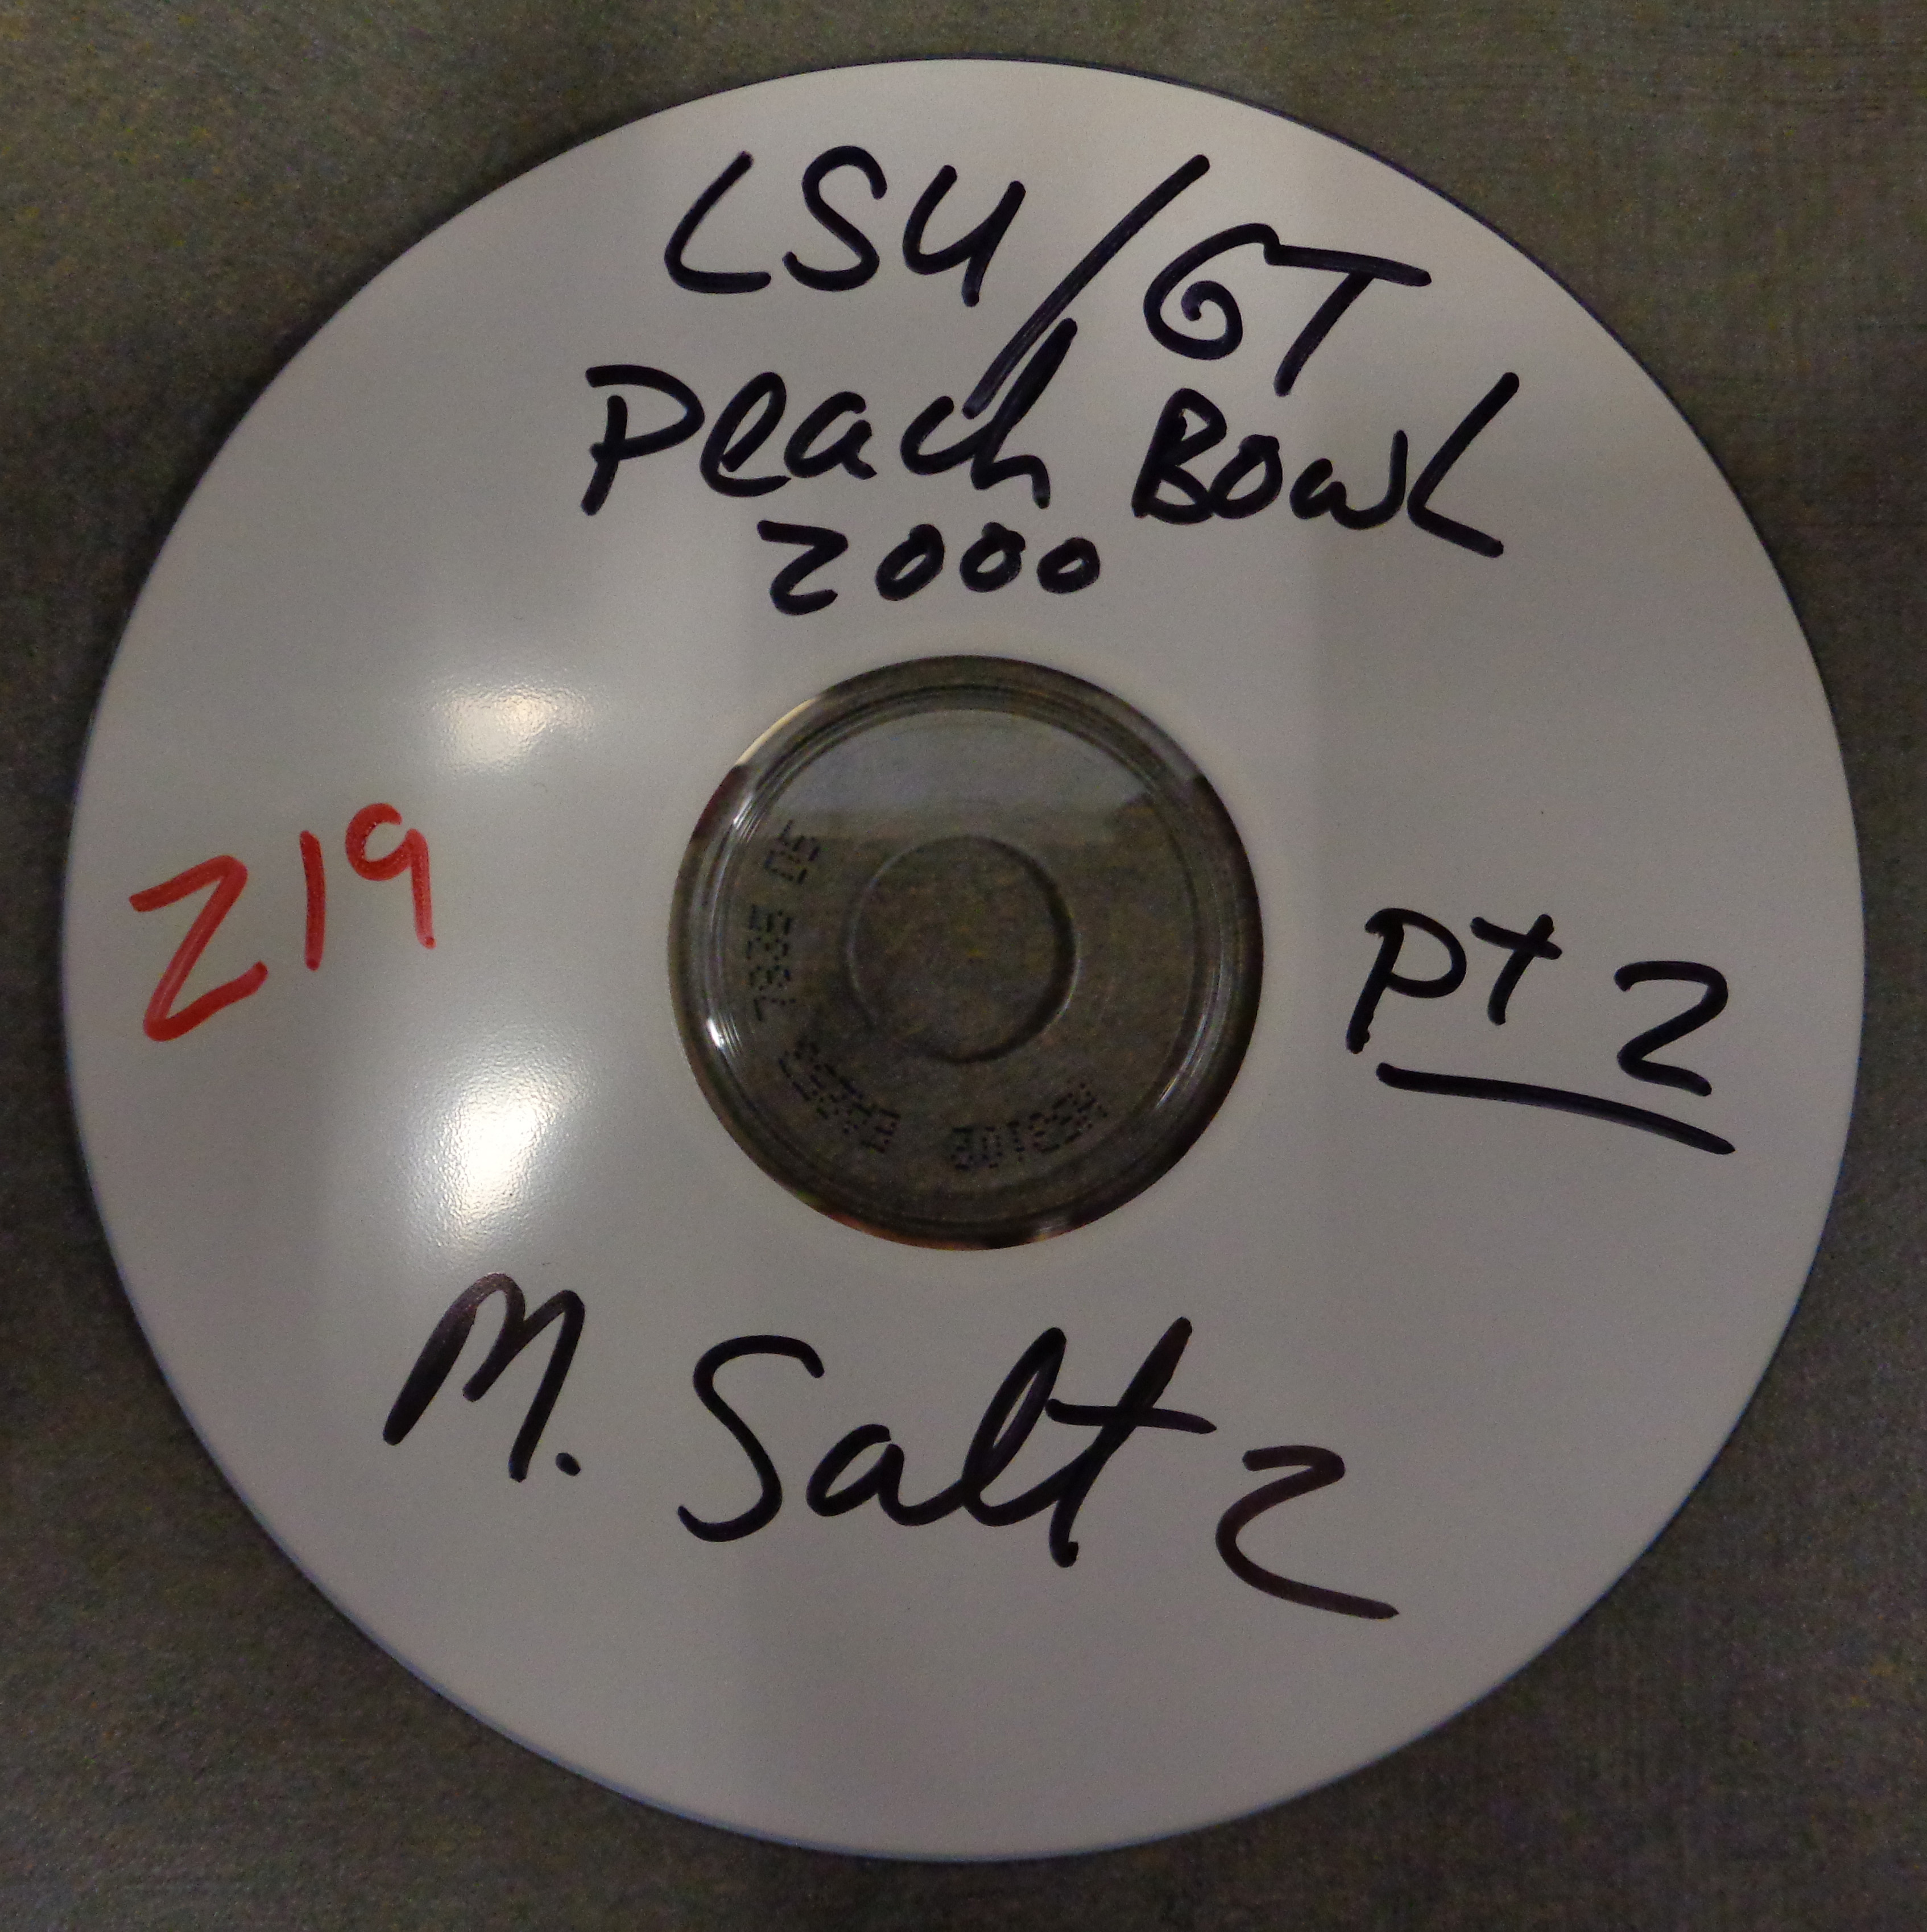 LSU/GT
Peach Bowl
2000
219
Pt 2
M. Saltz